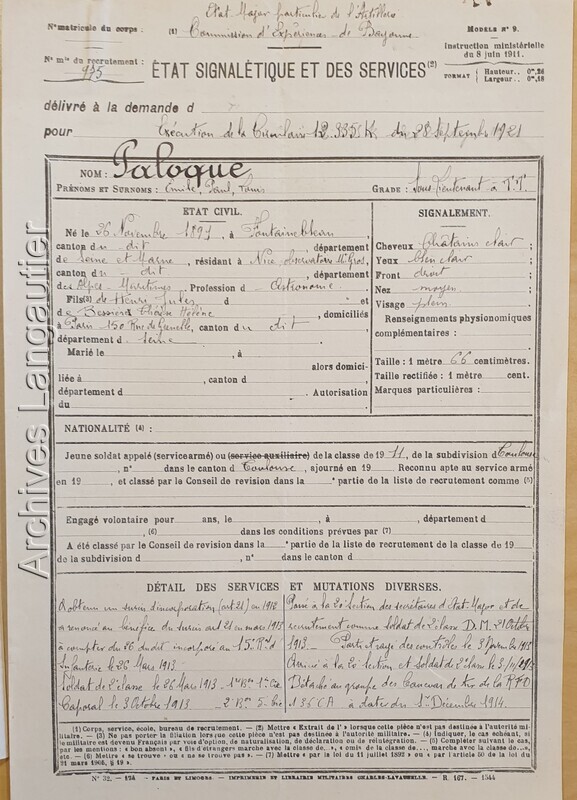 Etat Major particulier de l'Artillerie
N° matricule du corps :
(1) Commission d'Expériences de Bayonne
MODÈLE N° 9.
Instruction ministérielle
du 8 juin 1911.
N° mle du recrutement :
975
ÉTAT SIGNALÉTIQUE ET DES SERVICES (2)
FORMAT { Hauteur.. 0m,26
Largeur.. 0m,18
délivré à la demande d
pour Exécution de la Circulaire 12.335 K du 28 Septembre 1921
NOM : Paloque
PRÉNOMS ET SURNOMS : Emile, Paul, Louis
GRADE : Sous-Lieutenant à T.T.
ETAT CIVIL.
Né le 26 Novembre 1891, à Fontainebleau
canton du dit , département
de Seine et Marne, résidant à Nice, observatoire Mt Gros,
canton du dit , département
des Alpes-Maritimes, Profession d Astronome
Fils (3) de Henri Jules d et
de Bessieres Hélène , domiciliés
à Paris 150 Rue de Grenelle, canton du dit ,
département d Seine
Marié le , à
alors domici-
liée à , canton d ,
département d . Autorisation
du
SIGNALEMENT.
Cheveux Châtain clair ;
Yeux bleu clair ;
Front droit ;
Nez moyen ;
Visage plein.
Renseignements physionomiques
complémentaires :
Taille : 1 mètre 66 centimètres.
Taille rectifiée : 1 mètre cent.
Marques particulières :
NATIONALITÉ (4) :
Jeune soldat appelé (service armé) ou (service auxiliaire) de la classe de 1911, de la subdivision d Toulouse
, n° dans le canton d Toulouse , ajourné en 19 Reconnu apte au service armé
en 19 , et classé par le Conseil de revision dans la ° partie de la liste de recrutement comme (5)
Engagé volontaire pour ans, le , à , département d
, (6) dans les conditions prévues par (7)
A été classé par le Conseil de revision dans la ° partie de la liste de recrutement de la classe de 19
de la subdivision d , n° dans le canton d
DÉTAIL DES SERVICES ET MUTATIONS DIVERSES.
A obtenu un sursis d'incorporation (art 21) en 1912
a renoncé au bénéfice du sursis art 21 en mars 1913
à compter du 26 du dit incorporé au 15e Rgt d
Infanterie le 26 Mars 1913.
Soldat de 2e classe le 26 Mars 1913 - 1er Bon 1e Cie
Caporal le 3 Octobre 1913 - 2e Bon 5e Cie
Passé à la 20e section des secrétaires d'Etat-Major et de
recrutement comme soldat de 2e classe D.M. 21 Octobre
1913. Parti et rayé des contrôles le 3 Novembre 1913
Arrivé à la 20e section et Soldat de 2e classe le 3/11/1913
Détaché au groupe des Canevas de tir de la
à dater du 1er Décembre 1914.
(1) Corps, service, école, bureau de recrutement. — (2) Mettre « Extrait de l' » lorsque cette pièce n'est pas destinée à l'autorité mili-
taire. — (3) Ne pas porter la filiation lorsque cette pièce n'est pas destinée à l'autorité militaire. — (4) Indiquer, le cas échéant, si
le militaire est devenu Français par voie d'option, de naturalisation, de déclaration ou de réintégration. — (5) Compléter suivant le cas,
par les mentions : « bon absent », « fils d'étrangers marché avec la classe de.. », « omis de la classe de..., marche avec la classe de..»,
etc. — (6) Mettre « se trouve » ou « ne se trouve pas ». — (7) Mettre « par la loi du 11 juillet 1892 » ou « par l'article 50 de la loi du
21 mars 1905, § 19 ».
PARIS ET LIMOGES. — IMPRIMERIE ET LIBRAIRIE MILITAIRES CHARLES-LAVAUZELLE. — R. 167. — 1544
Archives Langautier